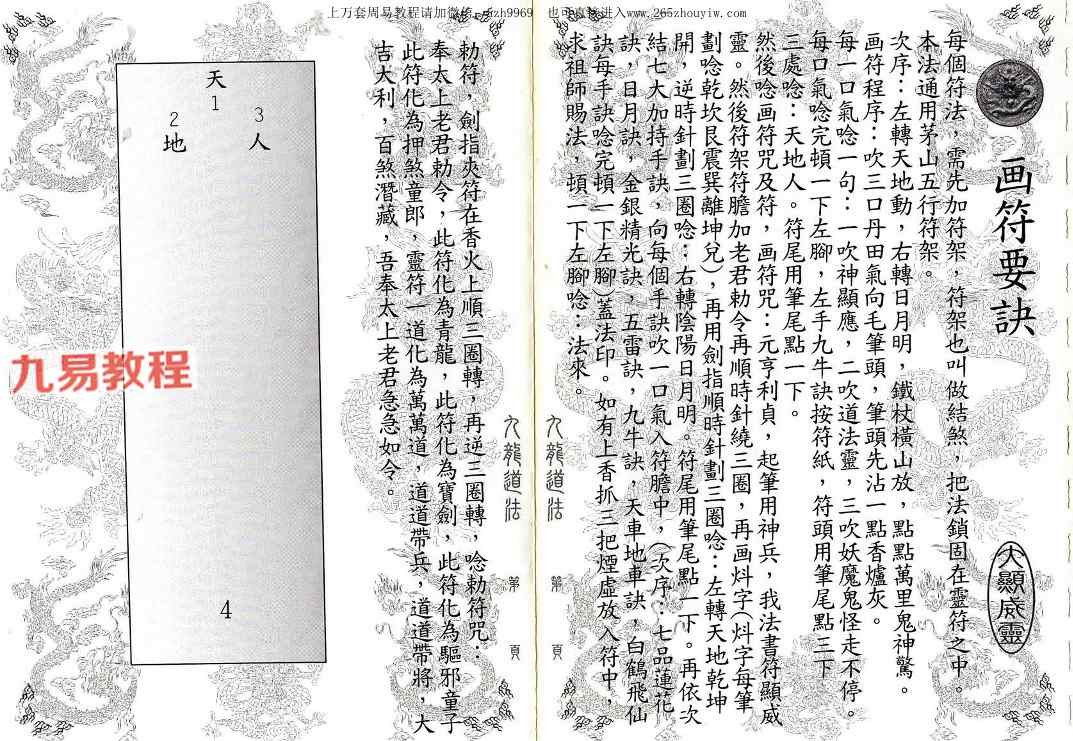 上万套周易教程请加微信 zh9969 也可直接进入www.265zhouyiw.com
画符要訣
大顯威靈
每個符法，需先加符架，符架也叫做結煞，把法鎖固在靈符之中。
本法通用茅山五行符架。
次序：左轉天地動，右轉日月明，鐵杖橫山放，點點萬里鬼神驚。
画符程序：吹三口丹田氣向毛筆頭，筆頭先沾一點香爐灰。
每一口氣唸一句：一吹神顯應，二吹道法靈，三吹妖魔鬼怪走不停。
每口氣唸完頓一下左腳，左手九牛訣按符紙，符頭用筆尾點三下
三處唸：天地人。符尾用筆尾點一下。
然後唸画符咒及符，画符咒：元亨利貞，起筆用神兵，我法書符顯威
靈。然後符架符膽加老君勅令再順時針繞三圈，再画炓字（炓字每筆
劃唸乾坎艮震巽離坤兌），再用劍指順時針劃三圈唸：左轉天地乾坤
開，逆時針劃三圈唸：右轉陰陽日月明。符尾用筆尾點一下。再依次
結七大加持手訣，向每個手訣吹一口氣入符膽中，（次序：七品蓮花
訣，日月訣，金銀精光訣，五雷訣，九牛訣，天車地車訣，白鶴飛仙
訣每手訣唸完頓一下左腳）蓋法印。如有上香抓三把煙虛放入符中，
求祖師賜法，頓一下左腳唸：法來。
九龍道法
第 頁
九龍道法
第 頁
勅符，劍指夾符在香火上順三圈轉，再逆三圈轉，唸勅符咒：
奉太上老君勅令，此符化為青龍，此符化為寶劍，此符化為驅邪童子
此符化為押煞童郎，靈符一道化為萬萬道，道道帶兵，道道帶將，大
吉大利，百煞潛藏，吾奉太上老君急急如令。
天
1
2
地
3
人
4
九易教程